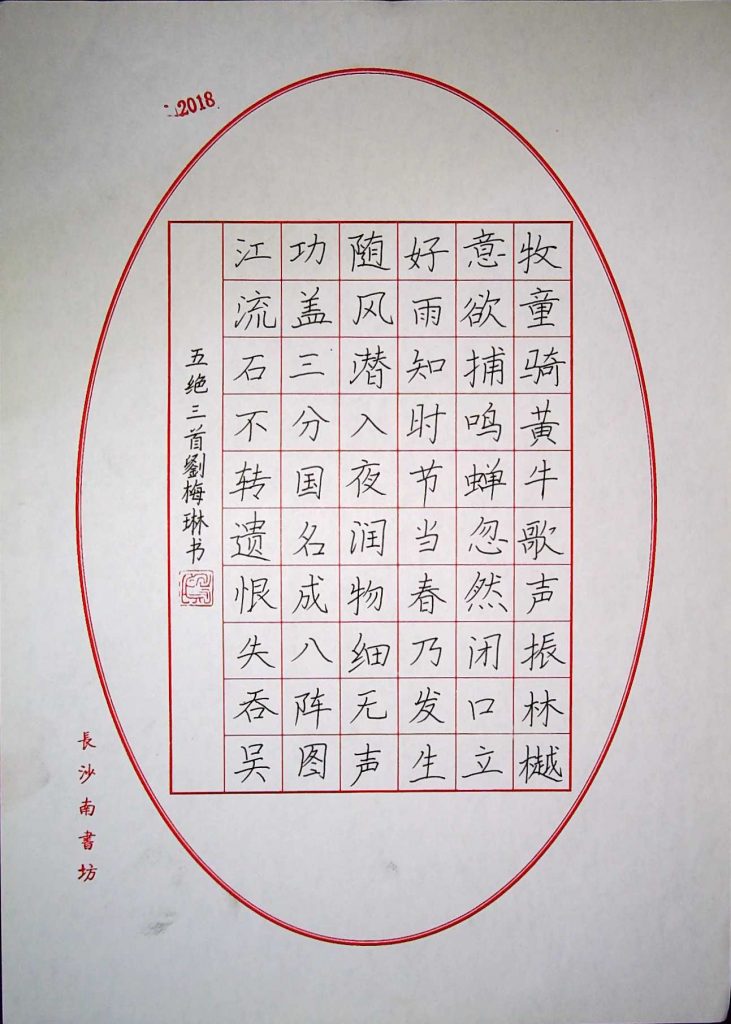 2018
牧童骑黄牛歌声振林樾
意欲捕鸣蝉忽然闭口立
好雨知时节当春乃发生
随风潜入夜润物细无声
功盖三分国名成八阵图
江流石不转遗恨失吞吴
五绝三首劉梅琳书
長沙南書坊